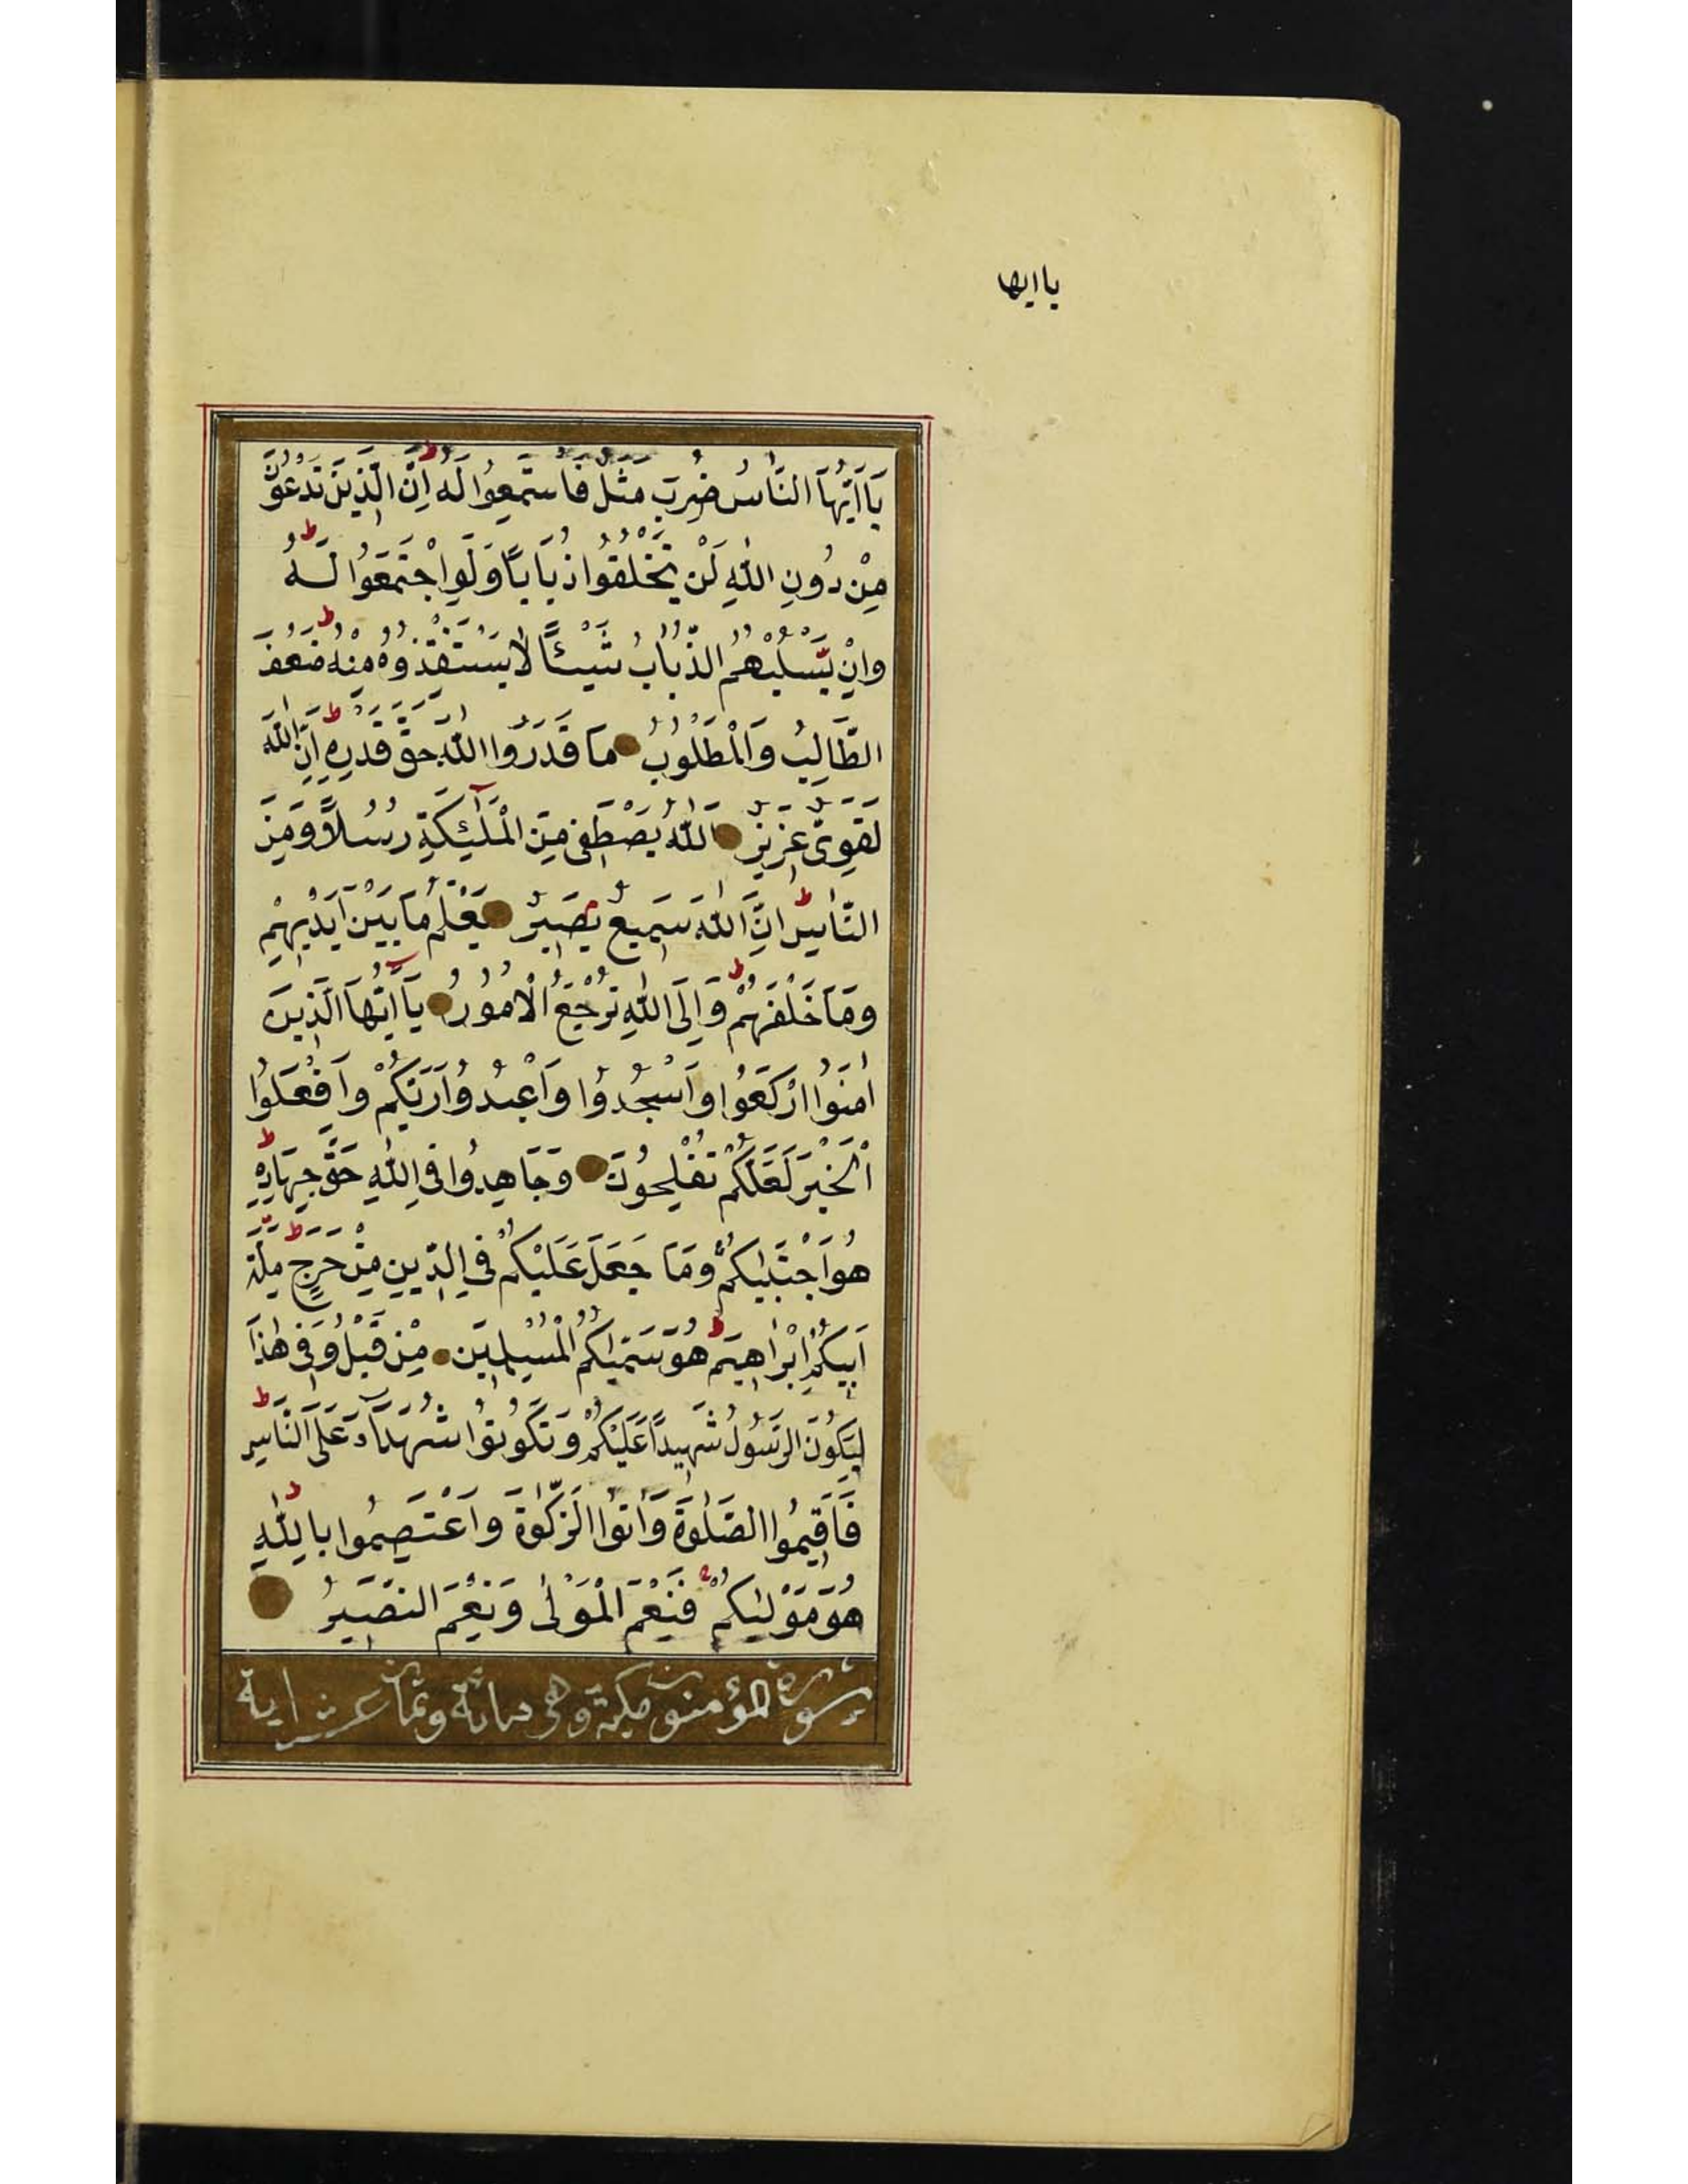 ياايها
يَٓا اَيُّهَا النَّاسُ ضُرِبَ مَثَلٌ فَاسْتَمِعُوا لَهُ اِنَّ الَّذِينَ تَدْعُونَ
مِنْ دُونِ اللّٰهِ لَنْ يَخْلُقُوا ذُبَابًا وَلَوِ اجْتَمَعُوا لَهُ
وَاِنْ يَسْلُبْهُمُ الذُّبَابُ شَيْئًا لَا يَسْتَنْقِذُوهُ مِنْهُ ضَعُفَ
الطَّالِبُ وَالْمَطْلُوبُ مَا قَدَرُوا اللّٰهَ حَقَّ قَدْرِهِ اِنَّ اللّٰهَ
لَقَوِىٌّ عَزِيزٌ اَللّٰهُ يَصْطَفِى مِنَ الْمَلٰٓئِكَةِ رُسُلًا وَمِنَ
النَّاسِ اِنَّ اللّٰهَ سَمِيعٌ بَصِيرٌ يَعْلَمُ مَا بَيْنَ اَيْدِيهِمْ
وَمَا خَلْفَهُمْ وَاِلَى اللّٰهِ تُرْجَعُ الْاُمُورُ يَٓا اَيُّهَا الَّذِينَ
اٰمَنُوا ارْكَعُوا وَاسْجُدُوا وَاعْبُدُوا رَبَّكُمْ وَافْعَلُوا
الْخَيْرَ لَعَلَّكُمْ تُفْلِحُونَ وَجَاهِدُوا فِى اللّٰهِ حَقَّ جِهَادِهِ
هُوَ اجْتَبٰيكُمْ وَمَا جَعَلَ عَلَيْكُمْ فِى الدِّينِ مِنْ حَرَجٍ مِلَّةَ
اَبِيكُمْ اِبْرٰاهِيمَ هُوَ سَمّٰيكُمُ الْمُسْلِمِينَ مِنْ قَبْلُ وَفِى هٰذَا
لِيَكُونَ الرَّسُولُ شَهِيدًا عَلَيْكُمْ وَتَكُونُوا شُهَدَٓاءَ عَلَى النَّاسِ
فَاَقِيمُوا الصَّلٰوةَ وَاٰتُوا الزَّكٰوةَ وَاعْتَصِمُوا بِاللّٰهِ
هُوَ مَوْلٰيكُمْ فَنِعْمَ الْمَوْلٰى وَنِعْمَ النَّصِيرُ
سورة المؤمنون مكية وهى مائة وثمان عشر اية